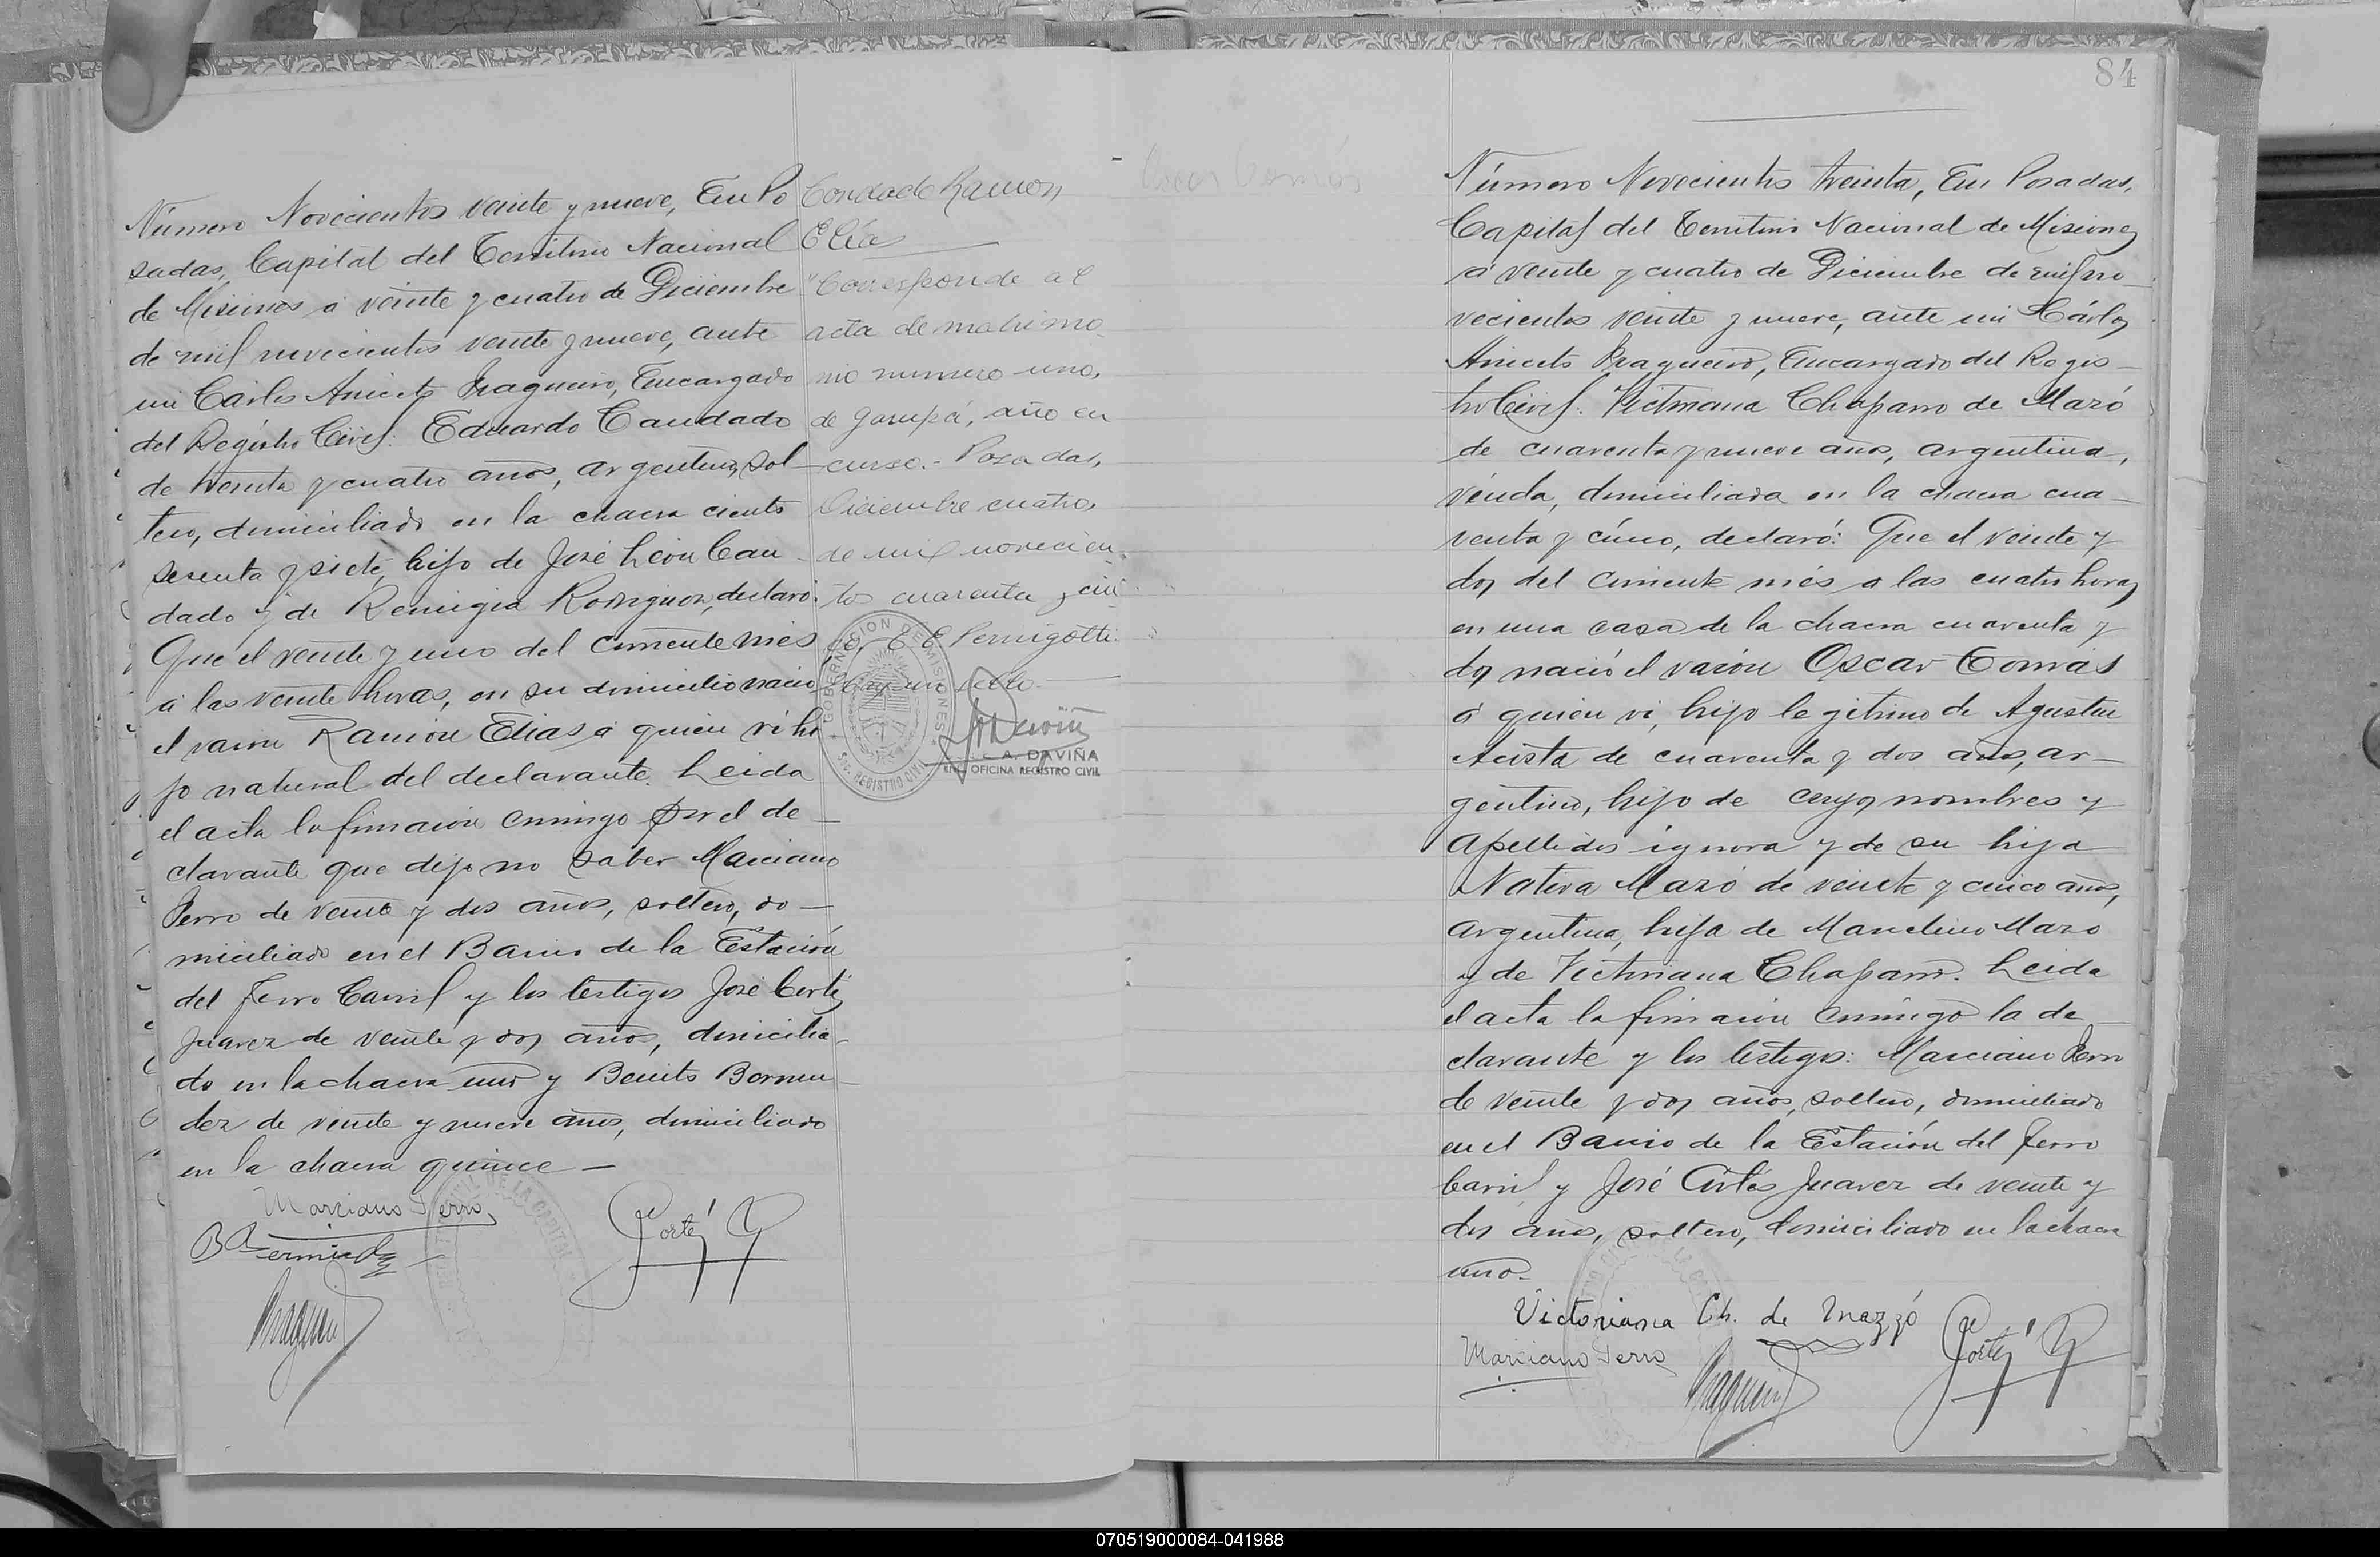 84
Número Novecientos veinte y nueve, En Po
sadas, Capital del Territorio Nacional
de Misiones a veinte y cuatro de Diciembre
de mil novecientos veinte y nueve, ante
mi Carlos Aniceto Fragueiro, Encargado
del Registro Civil: Eduardo Candado
de treinta y cuatro años, argentino, sol
tero, domiciliado en la chacra ciento
sesenta y siete, hijo de José León Can
dado y de Remigia declaró:
Que el veinte y uno del corriente mes
a las veinte horas, en su domicilio nació
el varón Ramón Elias a quien vi hi
jo natural del declarante. Leida
el acta la firmaron conmigo por el de
clarante que dijo no saber Marciano
Ferro de veinte y dos años, soltero, do
miciliado en el Barrio de la Estación
del Ferro Carril y los testigos José Cortés
Juarez de veinte y dos años, domicilia
do en la chacra uno y Benito Bermu
dez de veinte y nueve años, domiciliado
en la chacra quince —
Marciano Ferro
B Bermudez
Cortés
Ramon
Elías
"Corresponde al
acta de matrimo
nio numero uno,
de Garupá, año en
curso.- Posadas,
Diciembre cuatro,
de mil novecien
tos cuarenta y cin
co. C E Pernigotti
Hay un sello.-
GOBERNACION DE MISIONES
REGISTRO CIVIL
A. DAVIÑA
ENC. OFICINA REGISTRO CIVIL
Oscar Tomás
Número Novecientos treinta, En Posadas,
Capital del Territorio Nacional de Misiones
a veinte y cuatro de Diciembre de mil no
vecientos veinte y nueve, ante mi Cárlos
Aniceto Fragueiro, Encargado del Regis
tro Civil: Victoriana Chaparro de Mazó
de cuarenta y nueve años, argentina,
viuda, domiciliada en la chacra cua
renta y cinco, declaró: Que el veinte y
dos del corriente més a las cuatro horas
en una casa de la chacra cuarenta y
dos nació el varón Oscar Tomás
a quien vi, hijo legitimo de Agustin
Acosta de cuarenta y dos años, ar
gentino, hijo de cuyos nombres y
apellidos ignora y de su hija
Nativa Mazó de veinte y cinco años,
argentina, hija de Marcelino Mazo
y de Victoriana Chaparro. Leida
el acta la firmaron conmigo la de
clarante y los testigos: Marciano Ferro
de veinte y dos años, soltero, domiciliado
en el Barrio de la Estación del Ferro
Carril y José Cortés Juarez de veinte y
dos años, soltero, domiciliado en la chacra
uno.
Victoriana Ch. de Mazzó
Marciano Ferro
Cortés
070519000084-041988